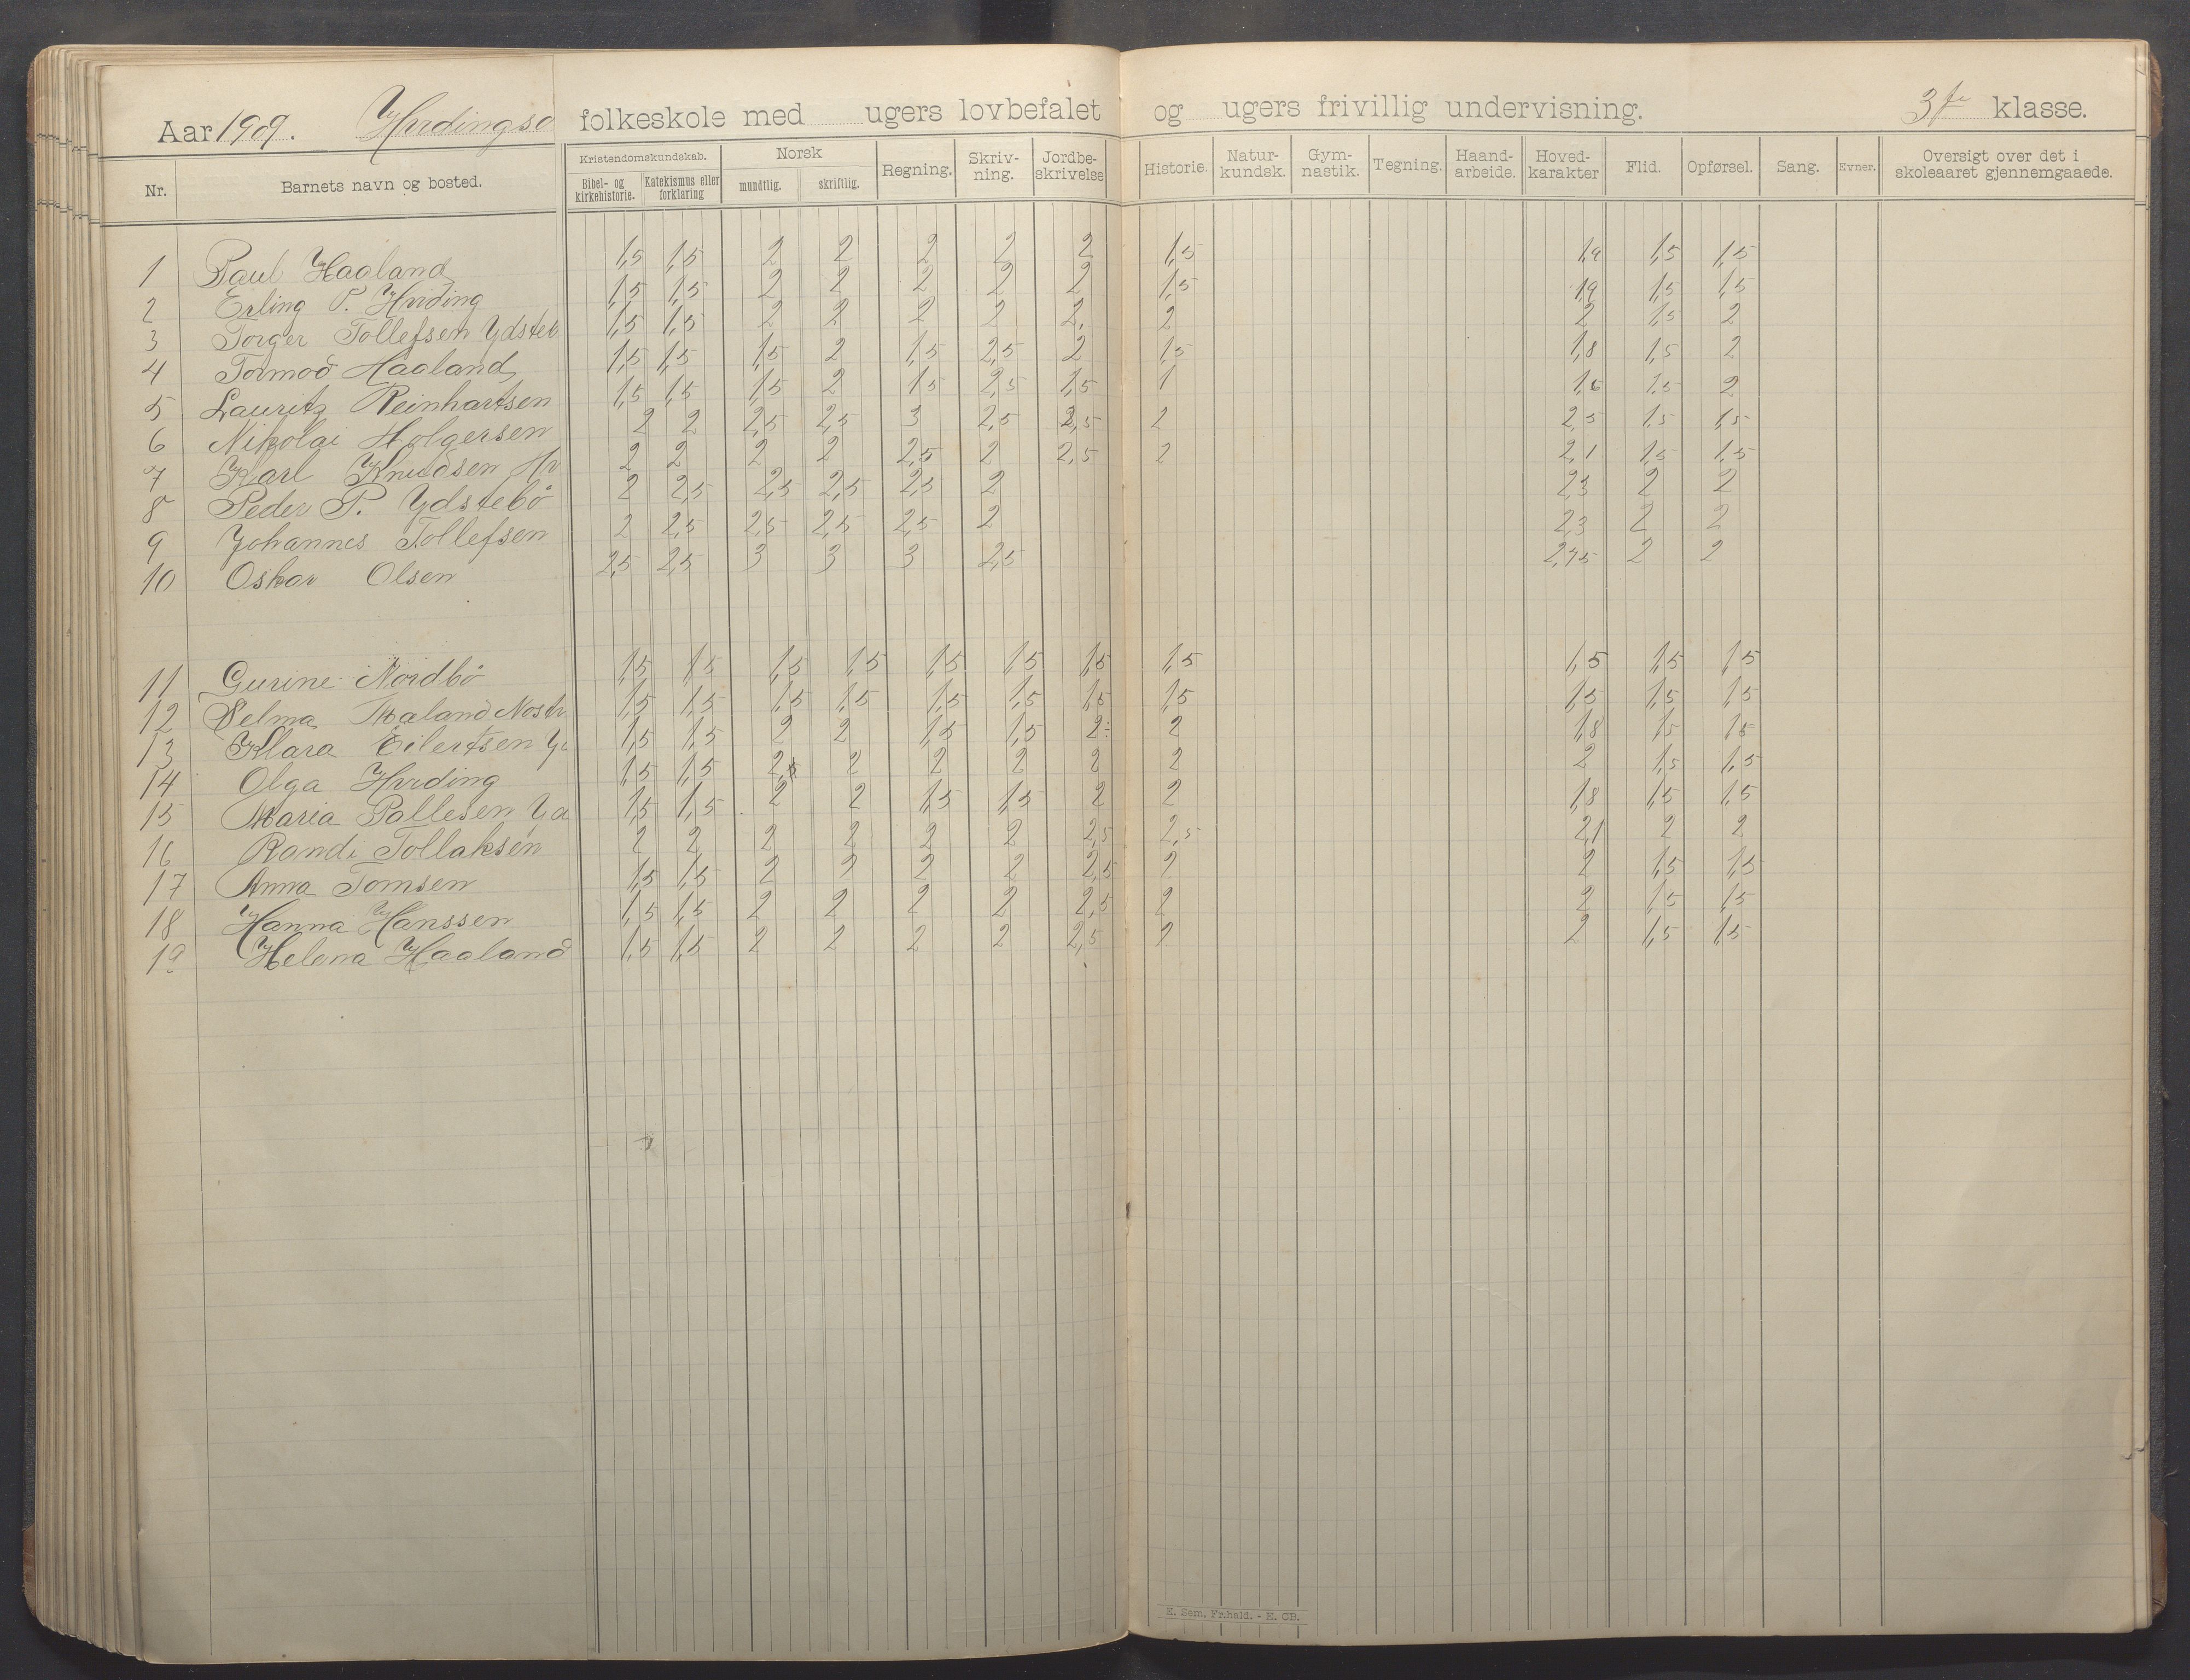 Aar 1909. Hvidingsø folkeskole med ugers lovbefalet og ugers frivillig undervisning. 3die klasse.
Nr. Barnets navn og bosted. Kristendomskundskab. Bibel- og kirkehistorie. Katekismus eller forklaring Norsk mundtlig. skriftlig. Regning. Skriv-ning. Jordbe-skrivelse Historie. Natur-kundsk. Gym-nastik. Tegning. Haand-arbeide. Hoved-karakter Flid. Opførsel. Sang. Evner. Oversigt over det i skoleaaret gjennemgaaede.
1 Paul Haaland 1,5 1,5 2 2 2 2 2 1,5 1,9 1,5 1,5
2 Erling P. Hviding 1,5 1,5 2 2 2 2 2 1,5 1,9 1,5 1,5
3 Torger Tollefsen Ydsteb 1,5 1,5 2 2 2 2 2. 2 2 1,5 2
4 Tormod Haaland 1,5 1,5 1,5 2 1,5 2,5 2 1,5 1,8 1,5 2
5 Lauritz Reinhartsen 1,5 1,5 1,5 2 1,5 2,5 1,5 1 1,6 1,5 2
6 Nikolai Holgersen 2 2 2,5 2,5 3 2,5 2,5 2 2,5 1,5 1,5
7 Karl Knudsen Hv 2 2 2 2 2,5 2 2,5 2 2,1 1,5 1,5
8 Peder P. Ydstebö 2 2,5 2,5 2,5 2,5 2 2,3 2 2
9 Johannes Tollefsen 2 2,5 2,5 2,5 2,5 2 2,3 2 2
10 Oskar Olsen 2,5 2,5 3 3 3 2,5 2,75 2 2
11 Gurine Nordbö 1,5 1,5 1,5 1,5 1,5 1,5 1,5 1,5 1,5 1,5 1,5
12 Selma Mæland Nostv 1,5 1,5 1,5 1,5 1,5 1,5 1,5 1,5 1,5 1,5 1,5
13 Klara Eilertsen Yd 1,5 1,5 2 2 1,5 1,5 2 2 1,8 1,5 1,5
14 Olga Hviding 1,5 1,5 2 2 2 2 2 2 2 1,5 1,5
15 Maria Pallesen Yd 1,5 1,5 2 2 1,5 1,5 2 2 1,8 1,5 1,5
16 Randi Tollaksen 2 2 2 2 2 2 2,5 2,5 2,1 2 2
17 Anna Tomsen 1,5 1,5 2 2 2 2 2,5 2 2 1,5 1,5
18 Hanna Hanssen 1,5 1,5 2 2 2 2 2,5 2 2 1,5 1,5
19 Helena Haaland 1,5 1,5 2 2 2 2 2,5 2 2 1,5 1,5
E. Sem, Fr.hald. - E. CB.